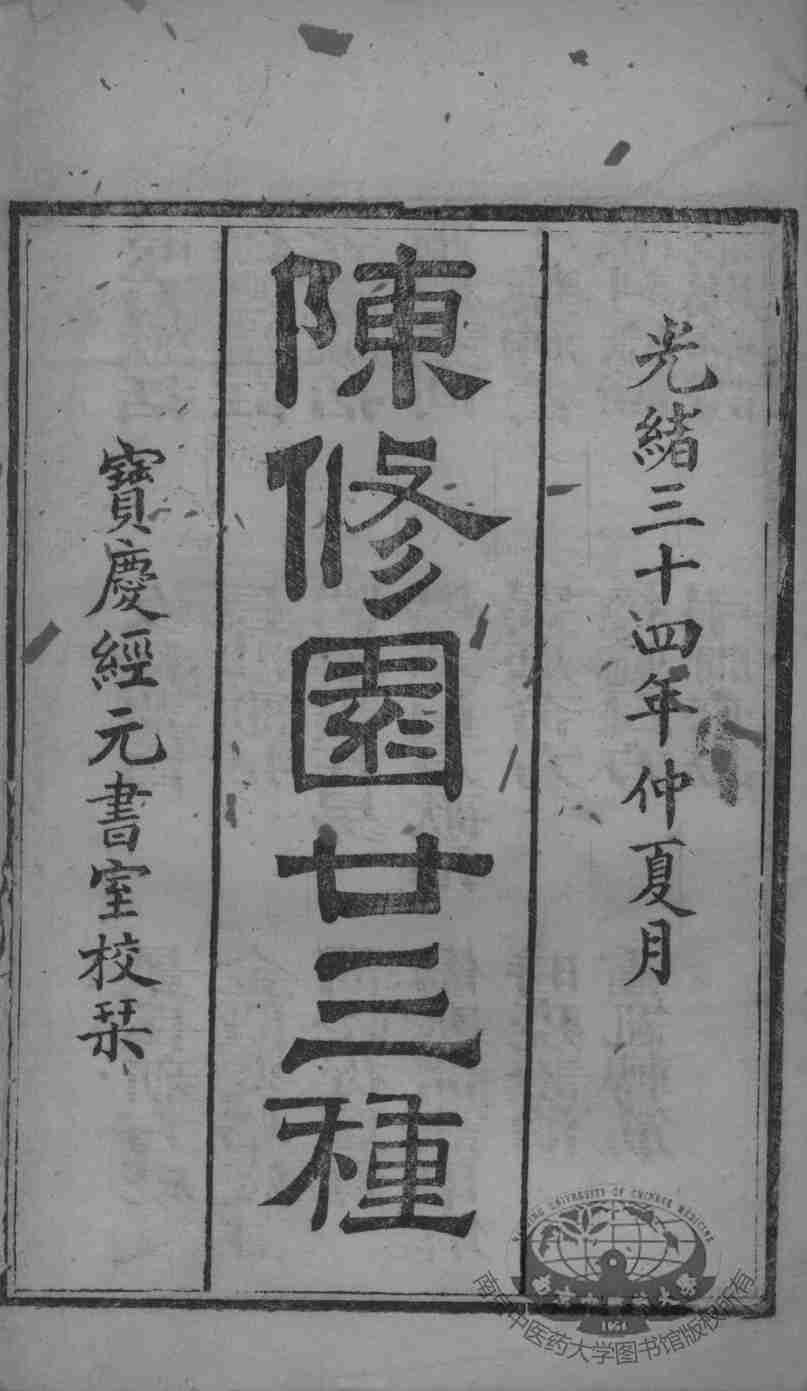 光緒三十四年仲夏月
陳修園廿三種
寶慶經元書室校栞
NANJING UNIVERSITY OF CHINESE MEDICINE
南京中医药大学
1954
南京中医药大学图书馆版权所有